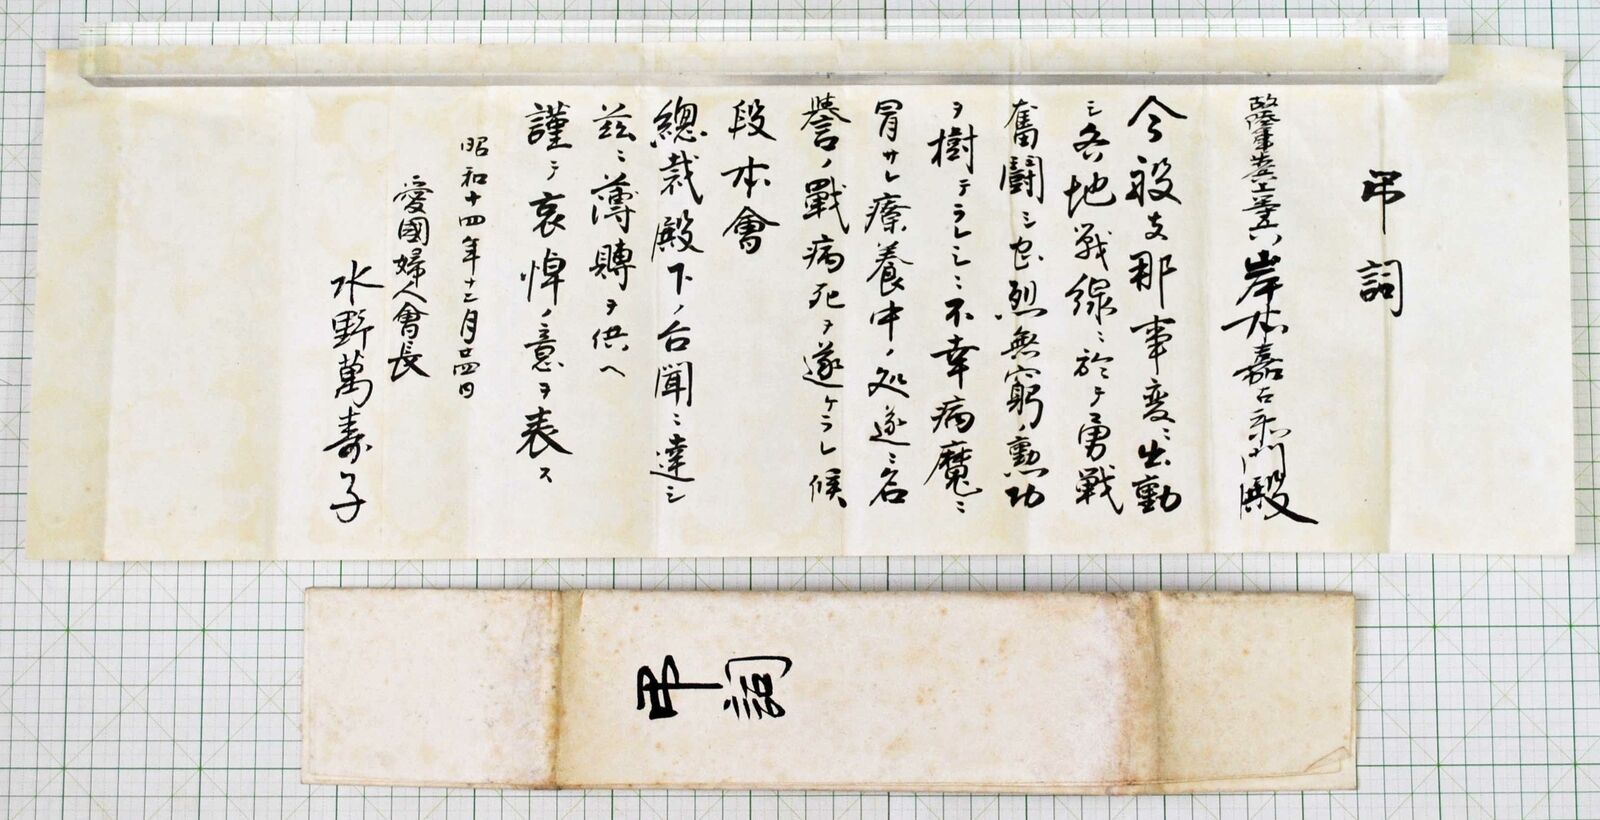 弔詞
故陸軍歩兵上等兵 岸本嘉右衛門殿
今般支那事変ニ出動
シ各地戦線ニ於テ勇戦
奮闘シ忠烈無窮ノ勲功
ヲ樹テラレシニ不幸病魔ニ
冒サレ療養中ノ処遂ニ名
誉ノ戰病死ヲ遂ケラレ候
段本會
總裁殿下ノ台聞ニ達シ
茲ニ薄賻ヲ供ヘ
謹テ哀悼ノ意ヲ表ス
昭和十四年十二月廿四日
愛國婦人會長
水野萬寿子
弔詞